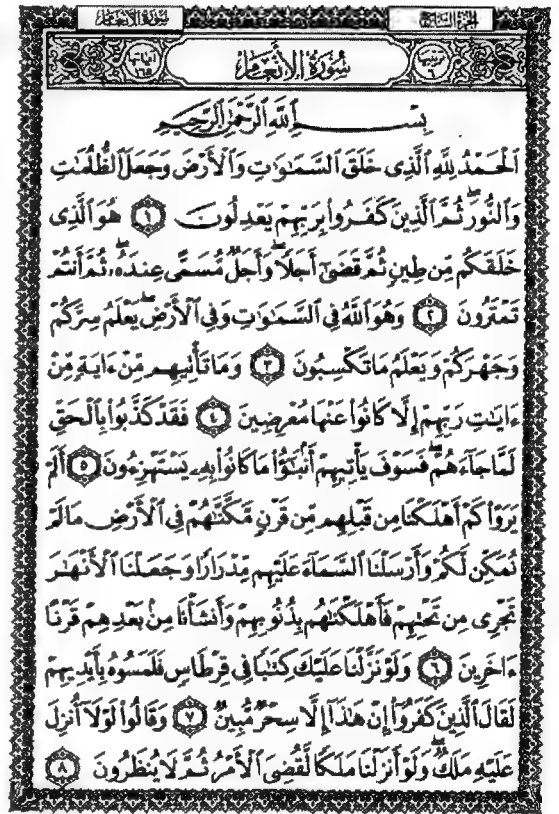 سورة الأنعام
الجزء السابع
ترتيبها ٦
سُورَةُ الأَنْعَام
آياتها ١٦٥
بِسْمِ ٱللَّهِ ٱلرَّحْمَٰنِ ٱلرَّحِيمِ
ٱلْحَمْدُ لِلَّهِ ٱلَّذِى خَلَقَ ٱلسَّمَٰوَٰتِ وَٱلْأَرْضَ وَجَعَلَ ٱلظُّلُمَٰتِ
وَٱلنُّورَ ۖ ثُمَّ ٱلَّذِينَ كَفَرُوا۟ بِرَبِّهِمْ يَعْدِلُونَ ١ هُوَ ٱلَّذِى
خَلَقَكُم مِّن طِينٍ ثُمَّ قَضَىٰٓ أَجَلًا ۖ وَأَجَلٌ مُّسَمًّى عِندَهُۥ ۖ ثُمَّ أَنتُمْ
تَمْتَرُونَ ٢ وَهُوَ ٱللَّهُ فِى ٱلسَّمَٰوَٰتِ وَفِى ٱلْأَرْضِ ۖ يَعْلَمُ سِرَّكُمْ
وَجَهْرَكُمْ وَيَعْلَمُ مَا تَكْسِبُونَ ٣ وَمَا تَأْتِيهِم مِّنْ ءَايَةٍ مِّنْ
ءَايَٰتِ رَبِّهِمْ إِلَّا كَانُوا۟ عَنْهَا مُعْرِضِينَ ٤ فَقَدْ كَذَّبُوا۟ بِٱلْحَقِّ
لَمَّا جَآءَهُمْ ۖ فَسَوْفَ يَأْتِيهِمْ أَنۢبَٰٓؤُا۟ مَا كَانُوا۟ بِهِۦ يَسْتَهْزِءُونَ ٥ أَلَمْ
يَرَوْا۟ كَمْ أَهْلَكْنَا مِن قَبْلِهِم مِّن قَرْنٍ مَّكَّنَّٰهُمْ فِى ٱلْأَرْضِ مَا لَمْ
نُمَكِّن لَّكُمْ وَأَرْسَلْنَا ٱلسَّمَآءَ عَلَيْهِم مِّدْرَارًا وَجَعَلْنَا ٱلْأَنْهَٰرَ
تَجْرِى مِن تَحْتِهِمْ فَأَهْلَكْنَٰهُم بِذُنُوبِهِمْ وَأَنشَأْنَا مِنۢ بَعْدِهِمْ قَرْنًا
ءَاخَرِينَ ٦ وَلَوْ نَزَّلْنَا عَلَيْكَ كِتَٰبًا فِى قِرْطَاسٍ فَلَمَسُوهُ بِأَيْدِيهِمْ
لَقَالَ ٱلَّذِينَ كَفَرُوٓا۟ إِنْ هَٰذَآ إِلَّا سِحْرٌ مُّبِينٌ ٧ وَقَالُوا۟ لَوْلَآ أُنزِلَ
عَلَيْهِ مَلَكٌ ۖ وَلَوْ أَنزَلْنَا مَلَكًا لَّقُضِىَ ٱلْأَمْرُ ثُمَّ لَا يُنظَرُونَ ٨